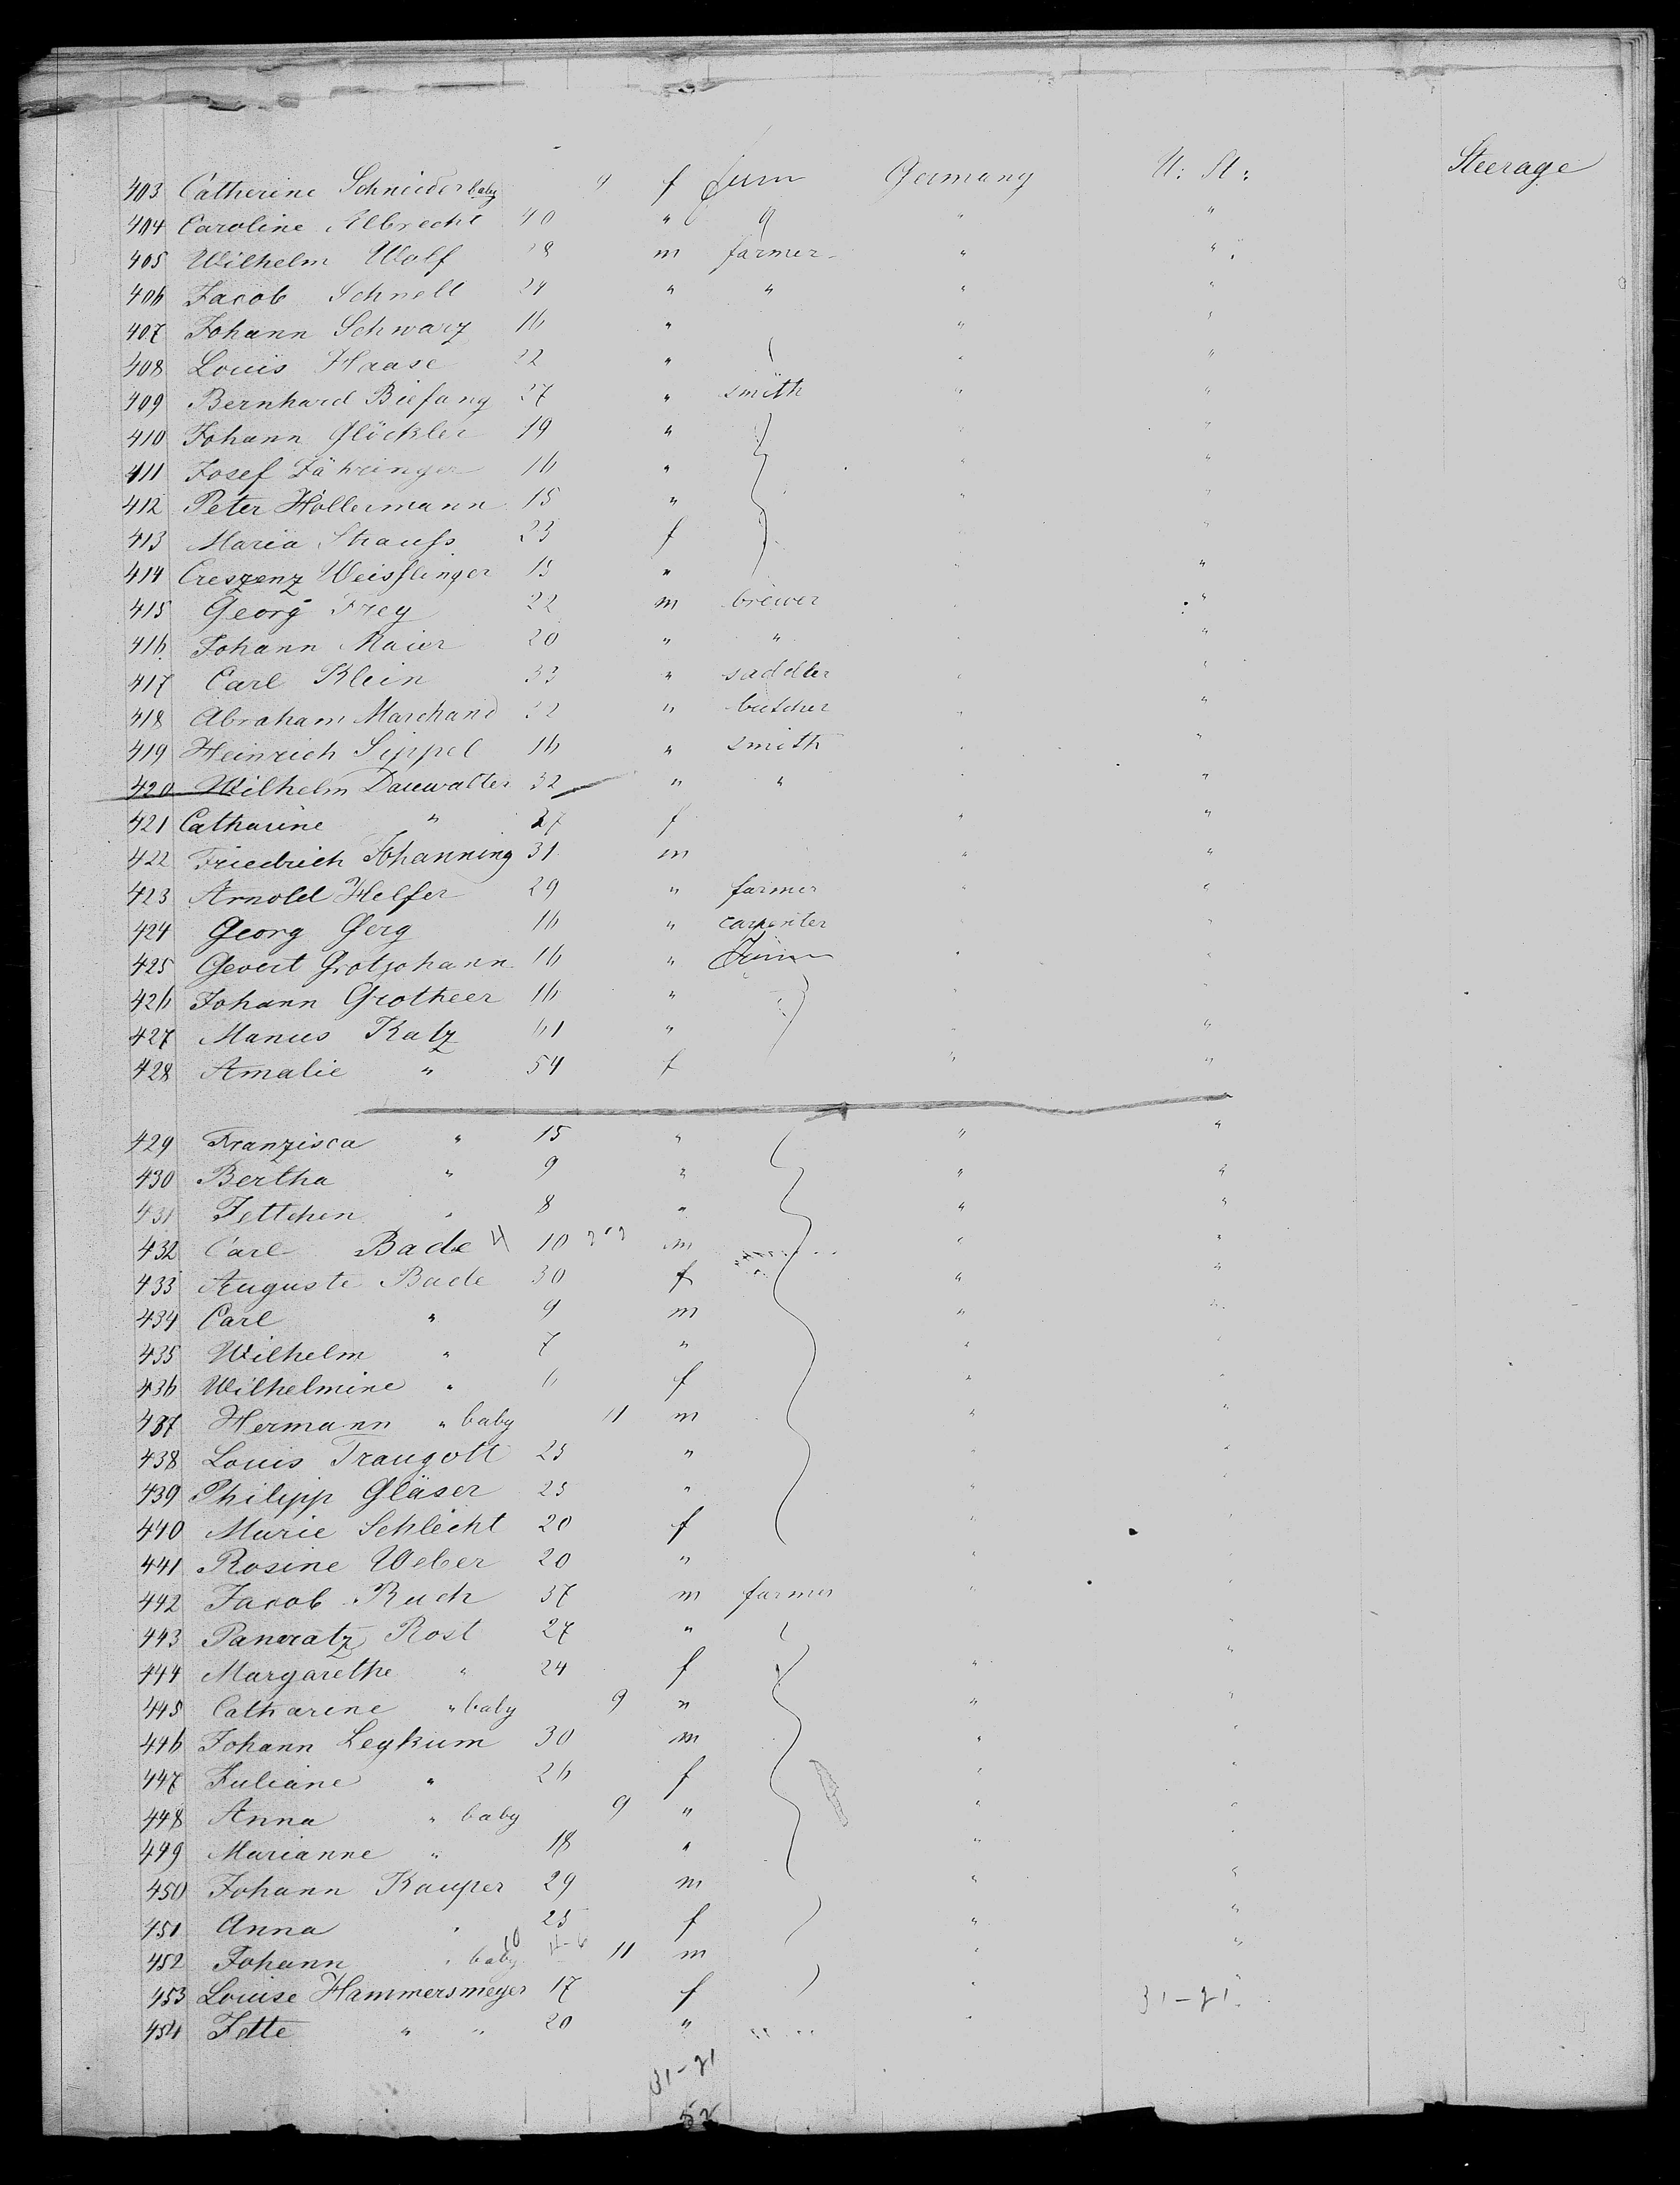 403 Catherine Schneider baby 4 f Germany U: St: Steerage
404 Caroline Albrecht 40 "
405 Wilhelm Wolf m farmer " "
406 Jacob Schnell 24 " " " "
407 Johann Schwarz 16 " " "
408 Louis Haase 22 " " "
409 Bernhard Biefang 27 " smith " "
410 Johann Glöckler 19 " " "
411 Josef Fähringer 16 " " "
412 Peter Hollermann 15 " " "
413 Maria Strauss 23 f " "
414 Creszenz Weisslinger 15 " " "
415 Georg Frey 22 m brewer " "
416 Johann Maier 20 " " " "
417 Carl Klein 33 " saddler " "
418 Abraham Marchand 32 " butcher " "
419 Heinrich Sippel 16 " smith " "
420 Wilhelm Dauwalter 32 " " " "
421 Catharine " 27 f " "
422 Friedrich Johanning 31 m " "
423 Arnold Helfer 29 " farmer " "
424 Georg Gerg 16 " carpenter " "
425 Gevert Grotjohann 16 " " "
426 Johann Grotheer 16 " " "
427 Manus Katz 61 " " "
428 Amalie " 54 f " "
429 Franzisca " 15 " " "
430 Bertha " 9 " " "
431 Jettchen " 8 " " "
432 Carl Bade 10 m " "
433 Auguste Bade 30 f " "
434 Carl " 9 m " "
435 Wilhelm " 7 " " "
436 Wilhelmine " 6 f " "
437 Hermann " baby 11 m " "
438 Louis Traugott 23 " " "
439 Philipp Gläser 23 " " "
440 Marie Schlecht 20 f " "
441 Rosine Weber 20 " " "
442 Jacob Ruch 37 m farmer " "
443 Pancratz Rost 27 " " "
444 Margarethe " 24 f " "
445 Catharine " baby 9 " " "
446 Johann Leykum 30 m " "
447 Juliane " 26 f " "
448 Anna " baby 9 " " "
449 Marianne " 18 " " "
450 Johann Kauper 29 m " "
451 Anna " 25 f " "
452 Johann " baby 10 11 m " "
453 Louise Hammersmeyer 17 f " "
454 Jette " " 20 " " 31-21
31-21
52